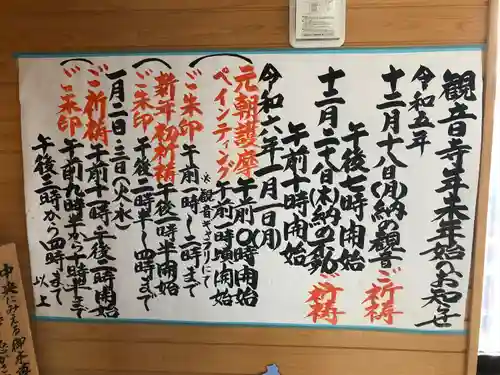 観音寺年末年始のお知らせ
令和五年
十二月十八日(月)納の観音ご祈祷
午後七時開始
十二月二十八日(木)納の不動ご祈祷
午前十時開始
令和六年一月一日(月)
元朝護摩 午前〇時開始
ペインティング 午前一時頃開始
※観音ギャラリーにて
ご朱印 午前一時~三時まで
新年初祈祷 午後一時半開始
ご朱印 午後二時半~四時まで
一月二日・三日(火・水)
ご祈祷 午前十一時、午後二時開始
ご朱印 午前九時半から十時半まで
午後三時から四時まで
以上
中央にみえる御本尊